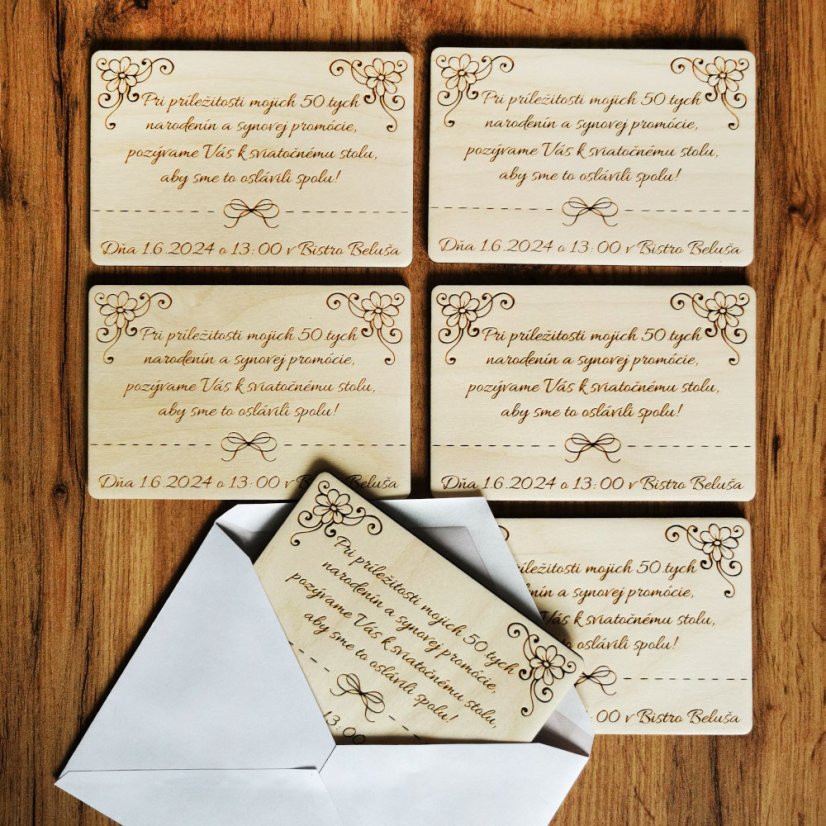 Pri príležitosti mojich 50.tych
narodenín a synovej promócie,
pozývame Vás k sviatočnému stolu,
aby sme to oslávili spolu!
Dňa 1.6.2024 o 13:00 v Bistro Beluša
Pri príležitosti mojich 50.tych
narodenín a synovej promócie,
pozývame Vás k sviatočnému stolu,
aby sme to oslávili spolu!
Dňa 1.6.2024 o 13:00 v Bistro Beluša
Pri príležitosti mojich 50.tych
narodenín a synovej promócie,
pozývame Vás k sviatočnému stolu,
aby sme to oslávili spolu!
Dňa 1.6.2024 o 13:00 v Bistro Beluša
Pri príležitosti mojich 50.tych
narodenín a synovej promócie,
pozývame Vás k sviatočnému stolu,
aby sme to oslávili spolu!
Dňa 1.6.2024 o 13:00 v Bistro Beluša
Pri príležitosti mojich 50.tych
narodenín a synovej promócie,
pozývame Vás k sviatočnému stolu,
aby sme to oslávili spolu!
13:00
mojich 50.tych
a synovej promócie,
k sviatočnému stolu,
oslávili spolu!
v Bistro Beluša